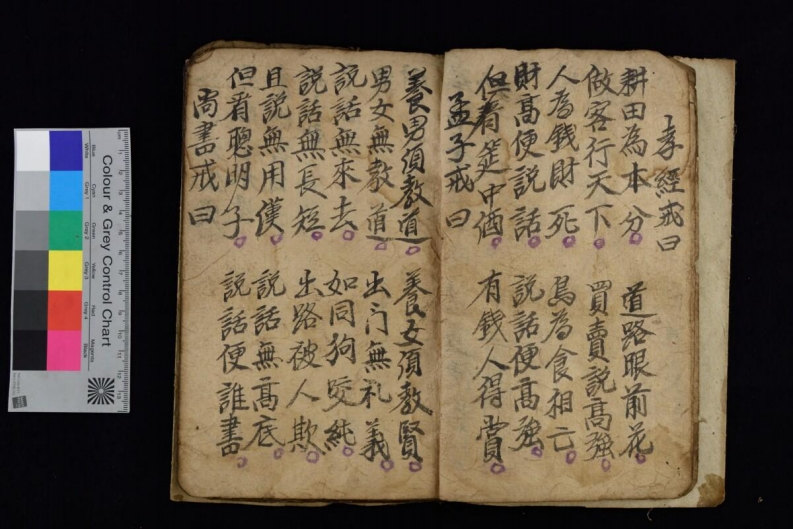 孝經戒曰
耕田為本分 道路眼前花
做客行天下 買賣說高強
人為錢財死 鳥為食相亡
財高便說話 說話便高強
但看筵中酒 有錢人得賞
孟子戒曰
養男須教道 養女須教賢
男女無教道 出门無礼義
說話無來去 如同狗咬純
說話無長短 出路被人欺
且說無用漢 說話無高底
但看聰明子 說話便誰書
尚書戒曰
Colour & Grey Control Chart
Blue Cyan Green Yellow Red Magenta
White Grey 1 Grey 2 Grey 3 Grey 4 Black